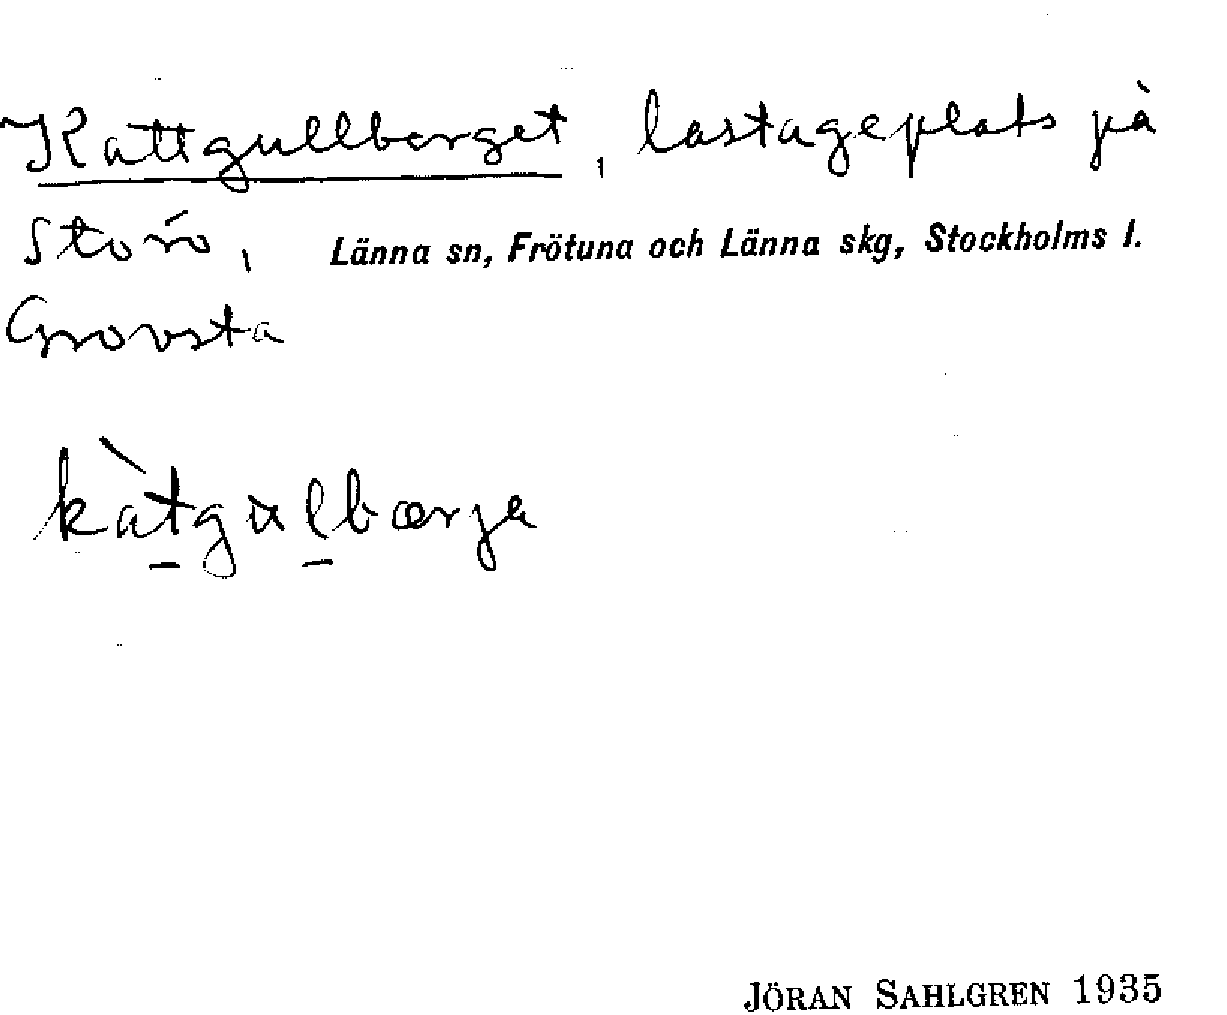 Kattgullberget, lastageplats på
Storö, Länna sn, Frötuna och Länna skg, Stockholms l.
Grovsta
kàtgulbærja
JÖRAN SAHLGREN 1935